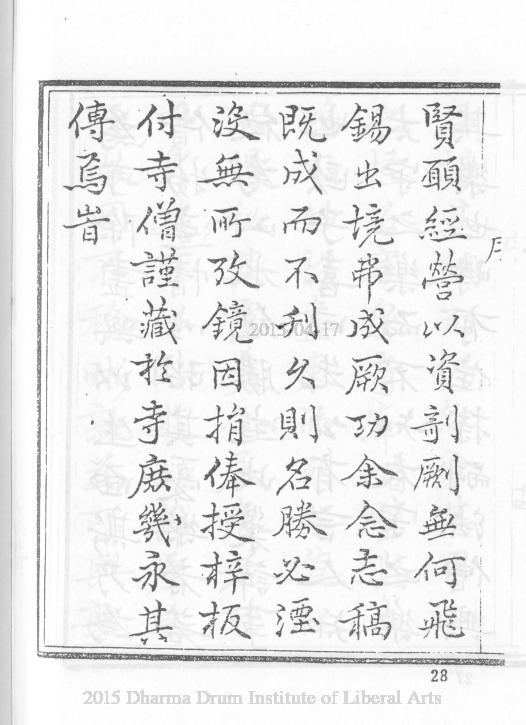 賢願經營以資剞劂無何飛
錫出境弗成厥功余念志稿
既成而不刊久則名勝必湮
沒無所攷鏡因捐俸授梓板
付寺僧謹藏於寺庶幾永其
傳焉旹
28
2015/04/17
2015 Dharma Drum Institute of Liberal Arts